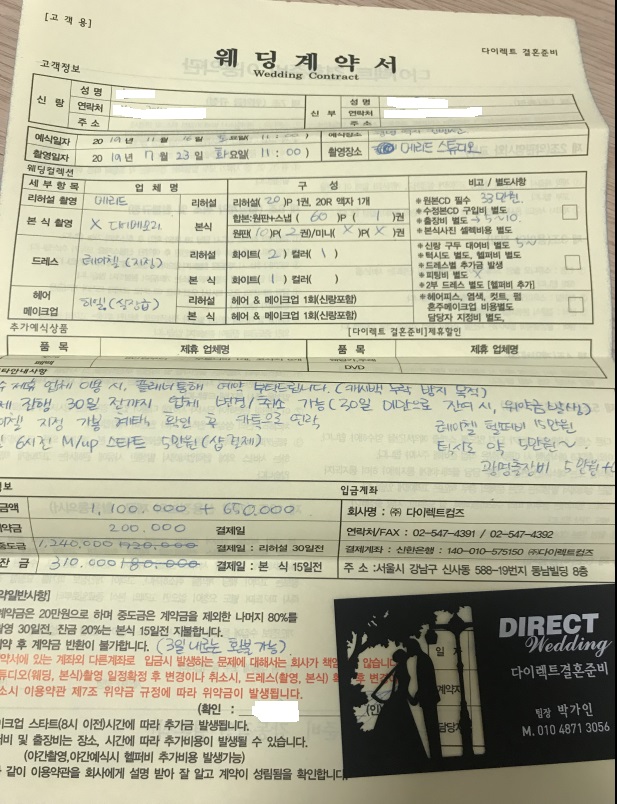 [고 객 용]
웨 딩 계 약 서
다이렉트 결혼준비
Wedding Contract
고객정보
신 랑 성 명 신 부 성 명
연락처 연락처
주 소 주 소
예식일자 20 19년 11월 요일( 11 : 00 ) 예식장소
촬영일자 20 19년 7월 23일 화요일( 11 : 00 ) 촬영장소 메리트 스튜디오
웨딩컬렉션
세 부 항 목 업 체 명 구 성 비고 / 별도사항
리허설 촬영 메리트 리허설 리허설( 20 )P 1권, 20R 액자 1개
*원본CD 필수 33만원.
*수정본CD 구입비 별도
*출장비 별도 → 5~10.
*본식사진 셀렉비용 별도
본 식 촬영 본식 합본:원판+스냅 ( 60 )P ( 1 )권
원판(10)P( 2 권)/미니( X )P( X )권
드레스 레이첼 (지정) 리허설 화이트( 2 ) 컬러( 1 )
본 식 화이트( 1 ) 컬러(
*신랑 구두 대여비 별도 5~
*턱시도 별도, 헬퍼비 별도
*드레스별 추가금 발생
*피팅비 별도 X
*2부 드레스 별도 [헬퍼비 추가]
헤어 메이크업 리허설 헤어 & 메이크업 1회(신랑포함)
본 식 헤어 & 메이크업 1회(신랑포함)
*헤어피스, 염색, 컷트, 펌
혼주메이크업 비용별도
담당자 지정비 별도,
추가예식상품 [다이렉트 결혼준비]제휴할인
품 목 제휴 업체명 품 목 제휴업체명
DVD
타안내사항
제휴 업체 이용 시, 플래너 통해 예약 부탁드립니다. (캐시백 누락 방지 목적)
진행 30일 전까지 업체 변경/취소 가능 (30일 미만으로 잔여 시, 위약금발생)
지정 가봉 확인 후 카톡으로 연락
레이첼 헬퍼비 15만원
6시진 M/up 스타트 5만원 (샵 결제)
턱시도 약 5만원~
광명출장비 5만원
보 입금계좌
금액 1,100,000 + 650,000 회사명 : ㈜ 다이렉트컴즈
약금 200,000 결제일 연락처/FAX : 02-547-4391 / 02-547-4392
중도금 1,240,000 720,000 결제일 : 리허설 30일전 결제계좌 : 신한은행 : 140-010-575150 ㈜다이렉트컴즈
잔 금 310,000 180,000 결제일 : 본 식 15일전 주 소 :서울시 강남구 신사동 588-19번지 동남빌딩 8층
약일반사항]
계약금은 20만원으로 하며 중도금은 계약금을 제외한 나머지 80%를
촬영 30일전, 잔금 20%는 본식 15일전 지불합니다.
약 후 계약금 반환이 불가합니다. (3월 내로는 회복 가능)
약서에 있는 계좌와 다른계좌로 입금시 발생하는 문제에 대해서는 회사가 책 않습니다
튜디오(웨딩, 본식)촬영 일정확정 후 변경이나 취소시, 드레스(촬영, 본식) 후 변경
소시 이용약관 제7조 위약금 규정에 따라 위약금이 발생됩니다.
(확인 : (인)
이크업 스타트(8시 이전)시간에 따라 추가금 발생됩니다.
퍼비 및 출장비는 장소, 시간에 따라 추가비용이 발생될 수 있습니다.
(야간촬영,야간예식시 헬퍼비 추가비용 발생가능)
같이 이용약관을 회사에게 설명 받아 잘 알고 계약이 성립됨을 확인합니다.
일 자
계약자
담당자
DIRECT
Wedding
다이렉트결혼준비
팀장 박가인
M. 010 4871 3056